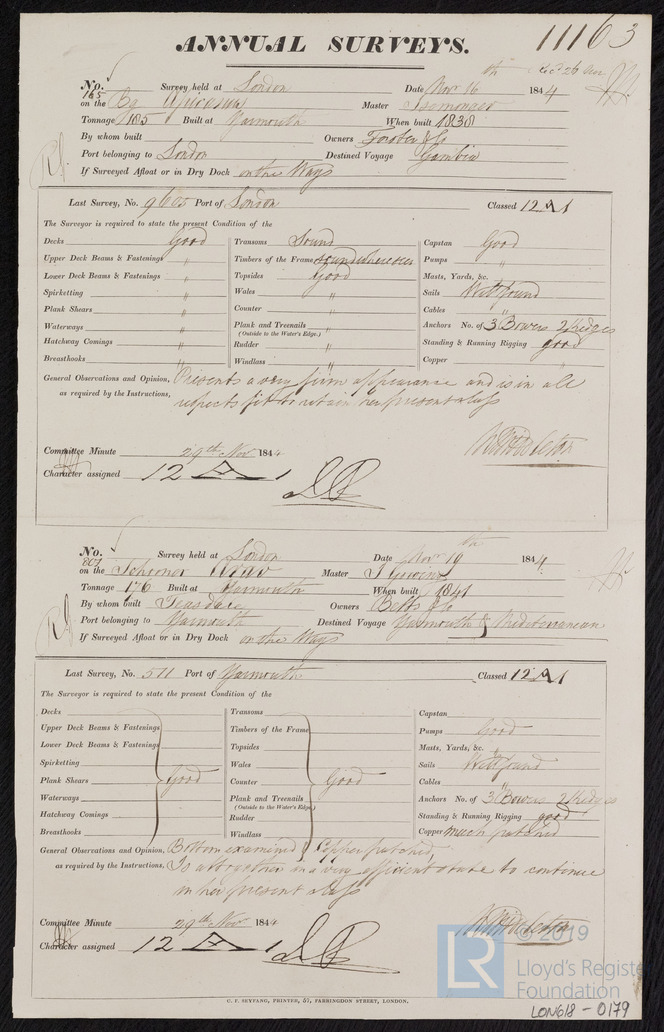 ANNUAL SURVEYS.
11163
No. 165 Survey held at London Date Nov 16th 1844
on the Bg Master Isemonger
Tonnage 185 Built at Yarmouth When built 1838
By whom built Owners Forster & Co
Port belonging to London Destined Voyage Gambia
If Surveyed Afloat or in Dry Dock on the Ways
Last Survey, No. 960 Port of London Classed 12 A 1
The Surveyor is required to state the present Condition of the
Decks Good Transoms Sound Capstan Good
Upper Deck Beams & Fastenings " Timbers of the Frame sound where seen Pumps "
Lower Deck Beams & Fastenings " Topsides Good Masts, Yards, &c.
Spirketting " Wales " Sails Well found
Plank Shears " Counter " Cables "
Waterways " Plank and Treenails " Anchors No. of 3 Bowers 2 Kedges
(Outside to the Water's Edge.)
Hatchway Comings " Rudder " Standing & Running Rigging good
Breasthooks " Windlass " Copper "
General Observations and Opinion, Presents a very firm appearance and is in all
as required by the Instructions, respects fit to retain her present class
Committee Minute 29th Nov 1844
Character assigned 12 A 1
No. 807 Survey held at London Date Nov 19th 1844
on the Schooner Master
Tonnage 176 Built at Yarmouth When built 1841
By whom built Teasdale Owners Betts & Co
Port belonging to Yarmouth Destined Voyage Yarmouth & Mediterranean
If Surveyed Afloat or in Dry Dock on the Ways
Last Survey, No. 511 Port of Yarmouth Classed 12 A 1
The Surveyor is required to state the present Condition of the
Decks Transoms Capstan
Upper Deck Beams & Fastenings Timbers of the Frame Pumps Good
Lower Deck Beams & Fastenings Topsides Masts, Yards, &c.
Spirketting Wales Sails Well found
Plank Shears Good Counter Good Cables "
Waterways Plank and Treenails Anchors No. of 3 Bowers 2 Kedges
(Outside to the Water's Edge.)
Hatchway Comings Rudder Standing & Running Rigging good
Breasthooks Windlass Copper much patched
General Observations and Opinion, Bottom examined & Copper patched,
as required by the Instructions, Is altogether in a very efficient state to continue
in her present class
Committee Minute 29th Nov 1844
Character assigned 12 A 1
C. F. SEYFANG, PRINTER, 57, FARRINGDON STREET, LONDON.
LR © 2019
Lloyd's Register
Foundation
LON618-0179